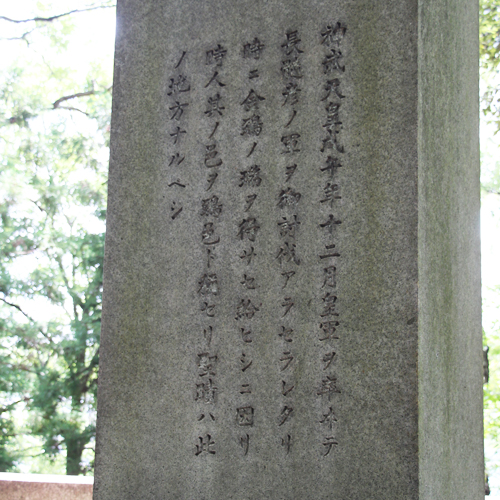 神武天皇戊午年十二月皇軍ヲ率ヰテ
長髄彦ノ軍ヲ御討伐アラセラレタリ
時ニ金鵄ノ瑞ヲ得サセ給ヒシニ因リ
時人其ノ邑ヲ鵄邑ト称セリ聖蹟ハ此
ノ地方ナルヘシ